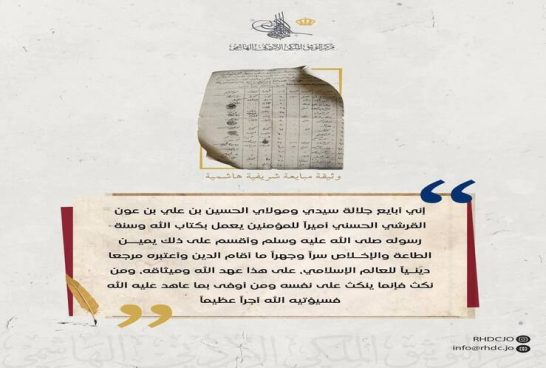 مركز التوثيق الملكي الأردني الهاشمي
وثيقة مبايعة شريفية هاشمية
إني أبايع جلالة سيدي ومولاي الحسين بن علي بن عون
القرشي الحسني أميراً للمؤمنين يعمل بكتاب الله وسنة
رسوله صلى الله عليه وسلم وأقسم على ذلك يميـــن
الطاعة والإخـلاص سراً وجهراً ما أقام الدين وأعتبره مرجعا
دينـياً للعالم الإسلامي، على هذا عهد الله وميثاقه، ومن
نكث فإنما ينكث على نفسه ومن أوفى بما عاهد عليه الله
فسيؤتيه الله أجراً عظيماً
RHDCJO
info@rhdc.jo